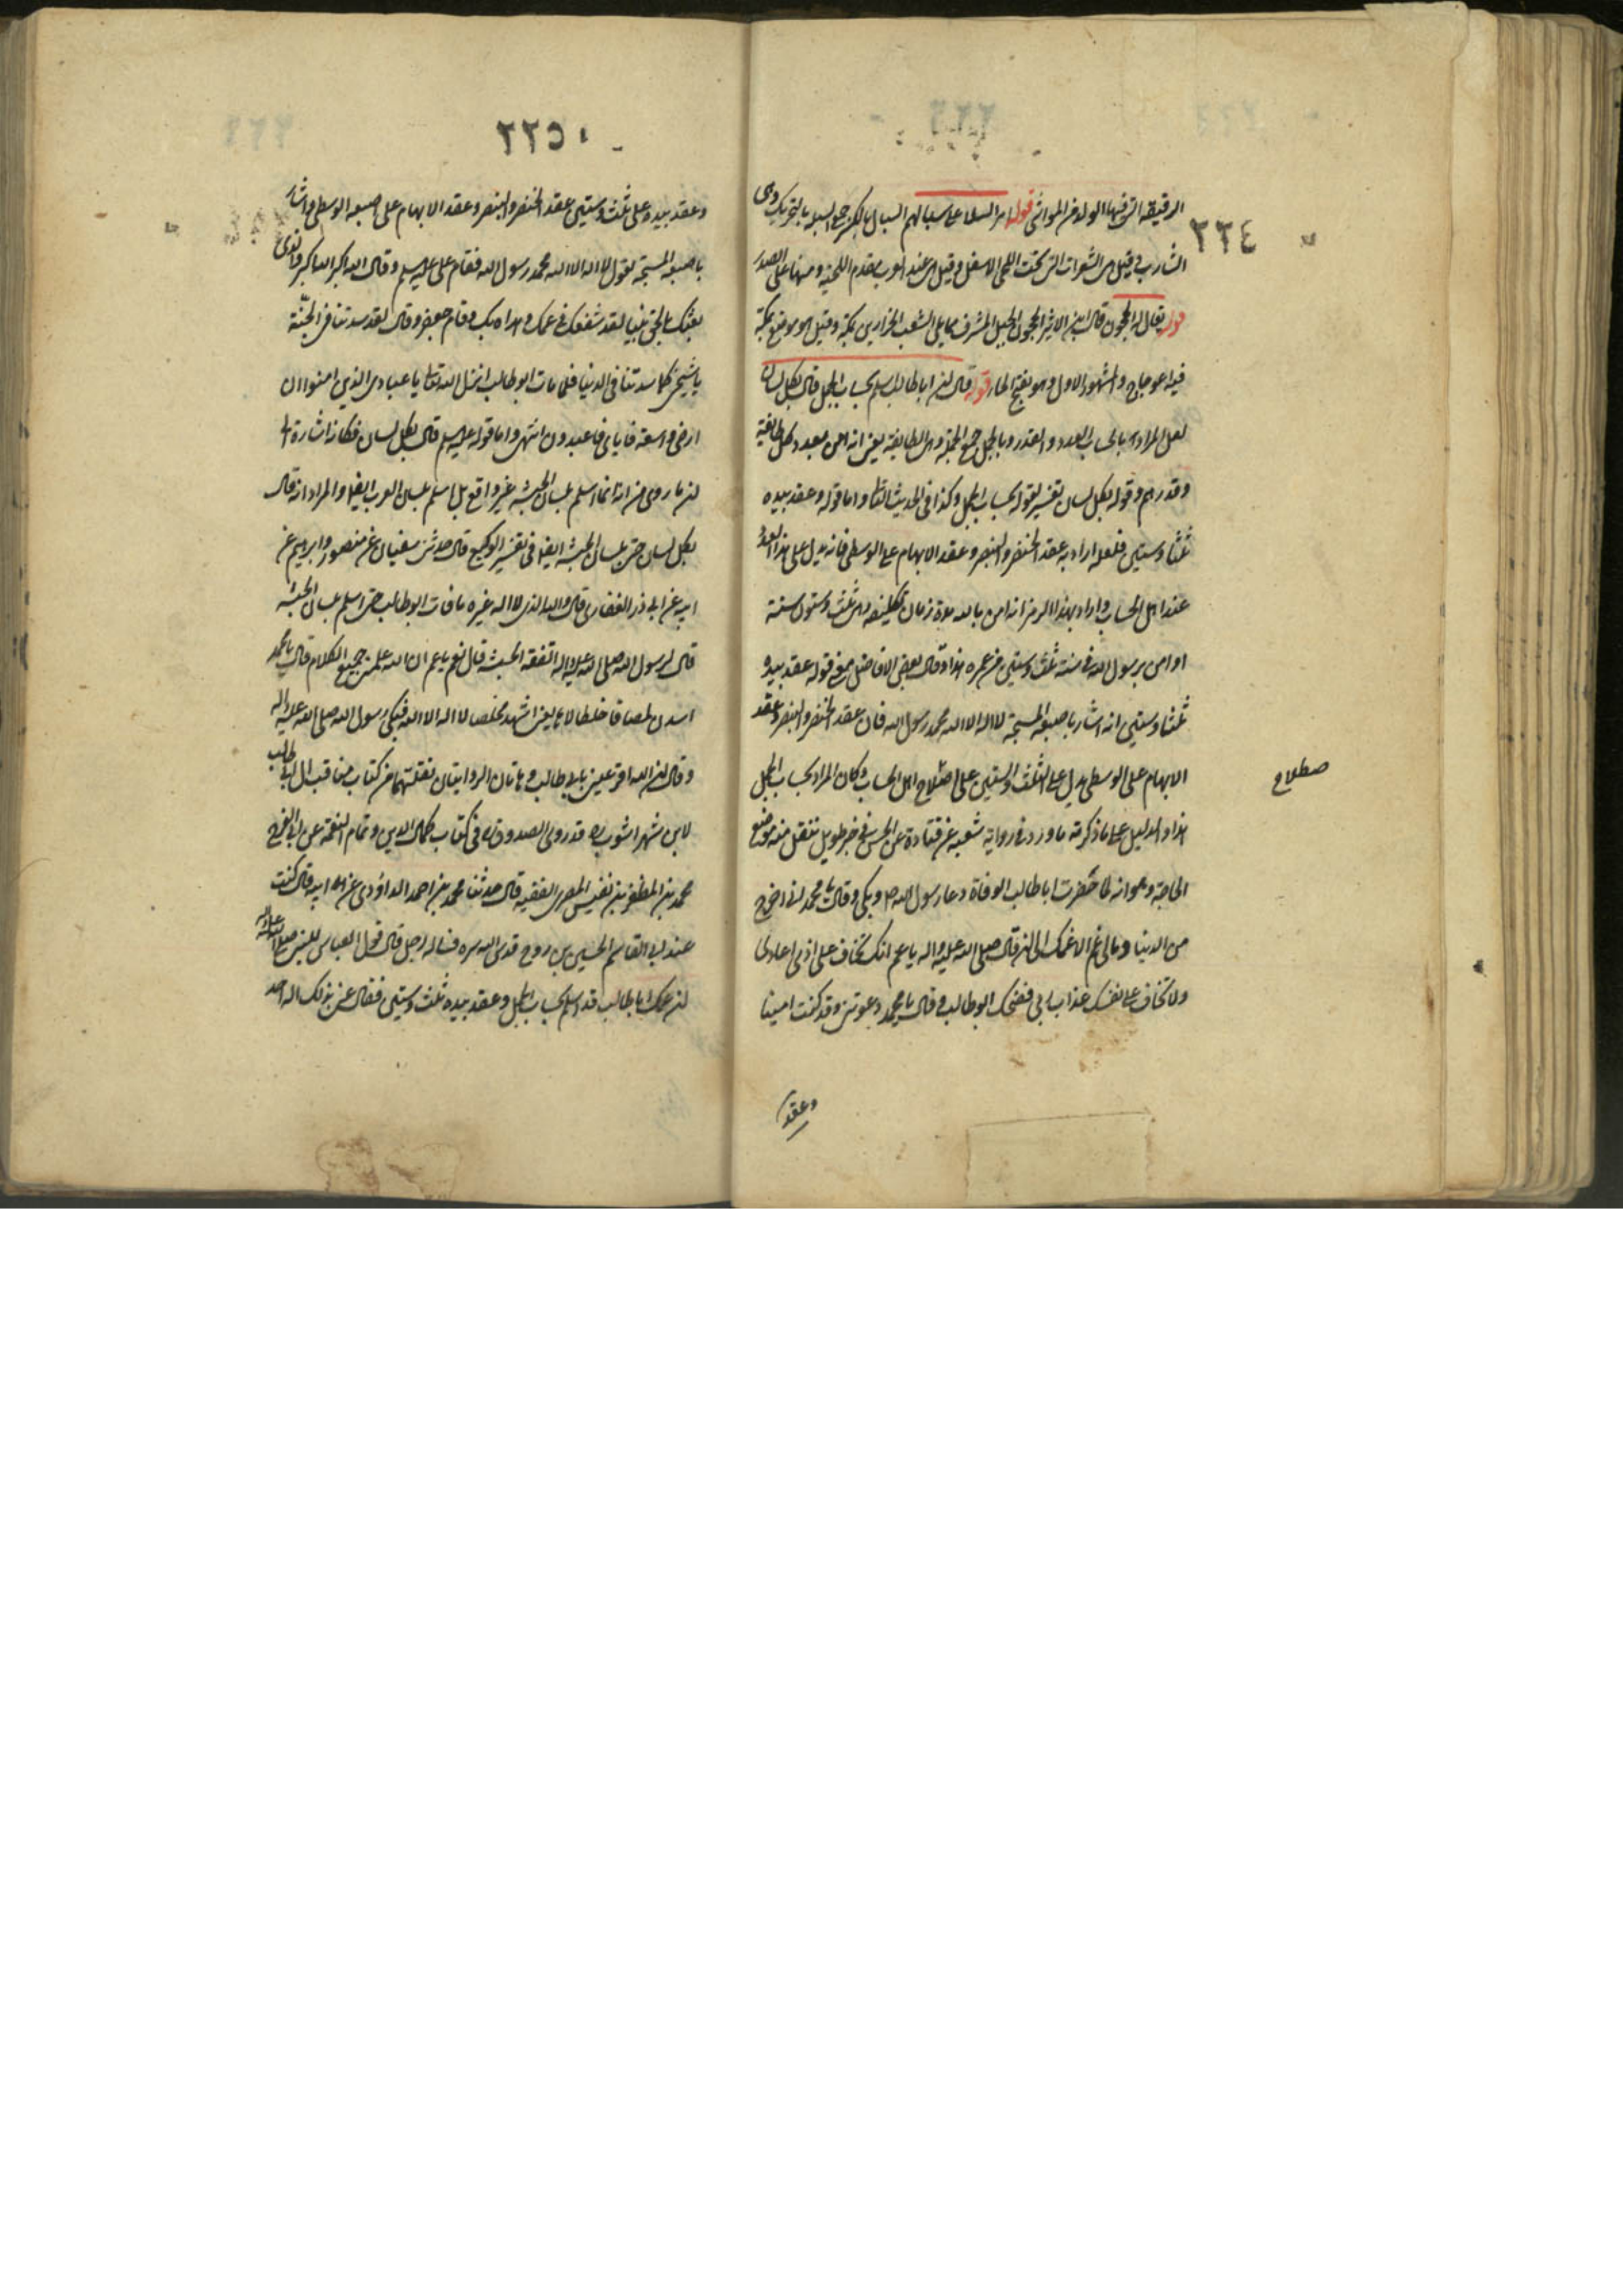 ٢٢٤
الرقيقة التي فيها الولد من المواشي قوله امر السلا على سبالهم السبال بالكسر جمع السبلة بالتحريك وهي
الشارب وقيل هي الشعرات التي تحت اللحى الاسفل وقيل هي عند العرب مقدم اللحية ومنها على الصدر
قوله يقال له الحجون قال ابن الاثير الحجون الجبل المشرف مما يلي الشعب الجزارين بمكة وقيل هو موضع بمكة
فيه اعوجاج والمشهور الاول وهو بفتح الحاء قوله قال ان ابا طالب اسلم بحساب الجمل قال بكل لسان
لعل المراد بالحساب العدد والقدر وبالجمل جمع الجملة وهي الطايفة يعني انه امن بعدد كل طائفة
وقدرهم وقوله بكل لسان تفسير لقوله بحساب الجمل وكذا في الحديث الثاني واما قوله وعقد بيده
ثلثا وستين فلعله اراد به عقد الخنصر والبنصر وعقد الابهام على الوسطى فانه يدل على هذا العدد
عند اهل الحساب واراد بهذا الرمز انه امن بالله مدة زمان تكليفه وهي ثلث وستون سنة
او امن برسول الله في سنة ثلث وستين من عمره هذا وقال بعض الافاضل معنى قوله عقد بيده
ثلثا وستين انه اشار باصبعه المسبحة لا اله الا الله محمد رسول الله فان عقد الخنصر والبنصر وعقد
الابهام على الوسطى يدل على الثلث والستين على اصطلاح اهل الحساب وكان المراد بحساب الجمل
صطلاح
هذا والدليل على ما ذكرته ما ورد في رواية شعبة عن قتادة عن الحسن في خبر طويل ننقل منه موضع
الحاجة وهو انه لما حضرت ابا طالب الوفاة دعا رسول الله ص وبكى وقال يا محمد اني اخرج
من الدنيا وما لي غم الا غمك الى ان قال صلى الله عليه واله يا عم انك تخاف على اذى اعادي
ولا تخاف على نفسك عذاب ربي فضحك ابو طالب وقال يا محمد دعوتني وقد كنت امينا
وعقد
٢٢٥
وعقد بيده على ثلث وستين عقد الخنصر والبنصر وعقد الابهام على اصبعه الوسطى واشار
باصبعه المسبحة يقول لا اله الا الله محمد رسول الله فقام علي عليه السلم وقال الله اكبر الله اكبر والذي
بعثك بالحق نبيا لقد شفعك في عمك وهداه بك وقام جعفر وقال لقد سدتنا في الجنة
يا شيخي كما سدتنا في الدنيا فلما مات ابو طالب انزل الله تعالى يا عبادي الذين امنوا ان
ارضي واسعة فاياي فاعبدون انتهى واما قوله عليه السلم قال بكل لسان فكانه اشارة الى
ان ما روي من انه انما اسلم بلسان الحبشة غير واقع بل اسلم بلسان العرب ايضا والمراد انه قال
بكل لسان حتى بلسان الحبشة ايضا في تفسير الوكيع قال حدثني سفيان عن منصور وابرهيم عن
ابيه عن ابي ذر الغفاري قال والله الذي لا اله غيره ما مات ابو طالب حتى اسلم بلسان الحبشة
قال لرسول الله صلى الله عليه واله اتفقه الحبشة قال نعم يا عم ان الله علمني جميع الكلام قال يا محمد
اسدن لمصاقا خلطالاها يعني اشهد مخلصا لا اله الا الله فبكى رسول الله صلى الله عليه واله
وقال ان الله اقر عيني بابي طالب وهاتان الروايتان نقلتهما من كتاب مناقب ال ابي طالب
لابن شهراشوب ره قد روى الصدوق ره في كتاب كمال الدين وتمام النعمة عن ابي الفرج
محمد بن المظفر بن نفيس المصري الفقيه قال حدثنا محمد بن احمد الداودي عن ابيه قال كنت
عند ابي القاسم الحسين بن روح قدس الله سره فساله رجل قال قول العباس للنبي صلى الله عليه واله
ان عمك ابا طالب قد اسلم بحساب الجمل وعقد بيده ثلث وستين فقال عنى بذلك اله احد